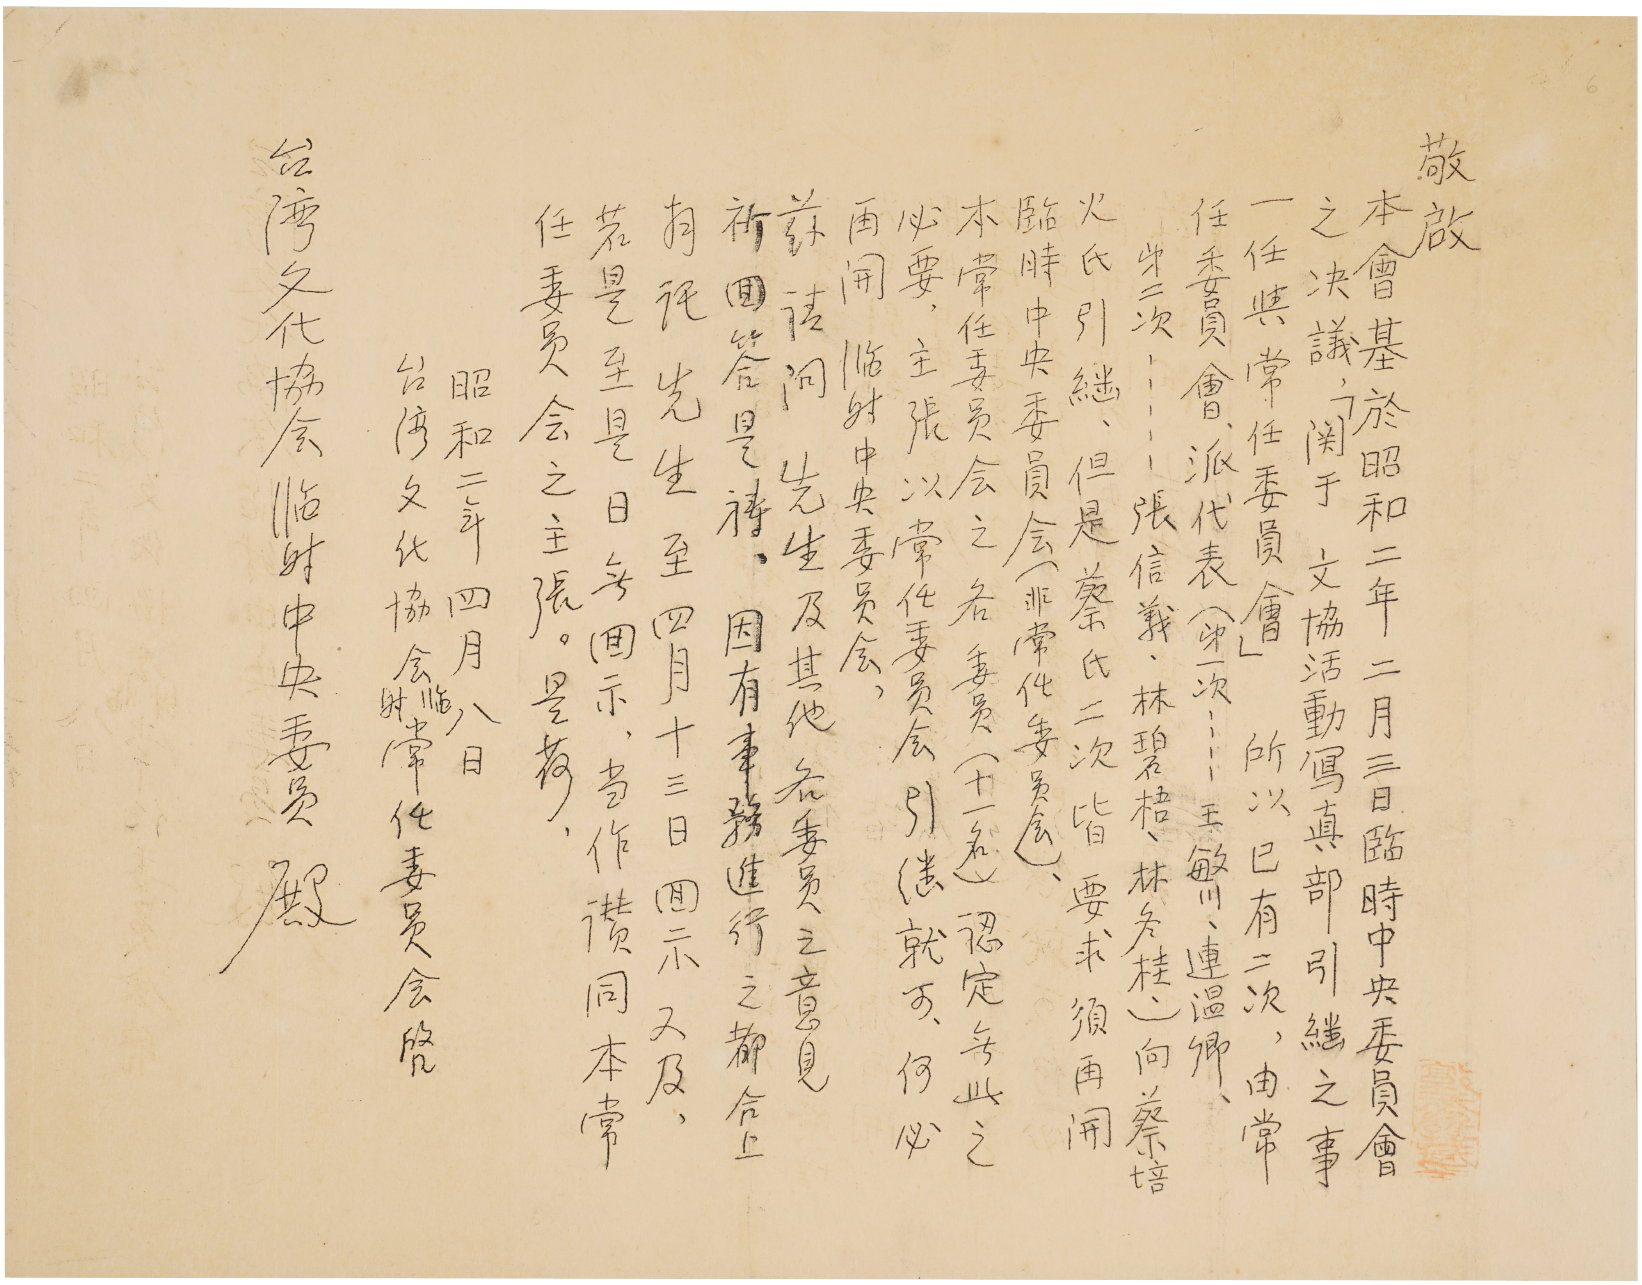 敬啟
本會基於昭和二年二月三日臨時中央委員會
之決議，「関于 文協活動寫真部引繼之事
一任與常任委員會」 所以已有二次，由常
任委員會、派代表（第一次－－－－王敏川、連温卿、
第二次－－－－－張信義、林碧梧、林冬桂、）向蔡培
火氏引繼、但是蔡氏二次皆要求須再開
臨時中央委員会（非常任委員会）、
本常任委員会之各委員（十一名）認定無此之
必要，主張以常任委員会引継就可、何必
再開臨時中央委員会，
茲請問 先生及其他各委員之意見
祈回答是禱、因有事務進行之都合上
拜託先生至四月十三日回示又及、
若是至是日無回示、当作讃同本常
任委員会之主張。是荷、
昭和二年四月八日
台湾文化協会臨時常任委員会啓
台湾文化協会臨時中央委員 殿